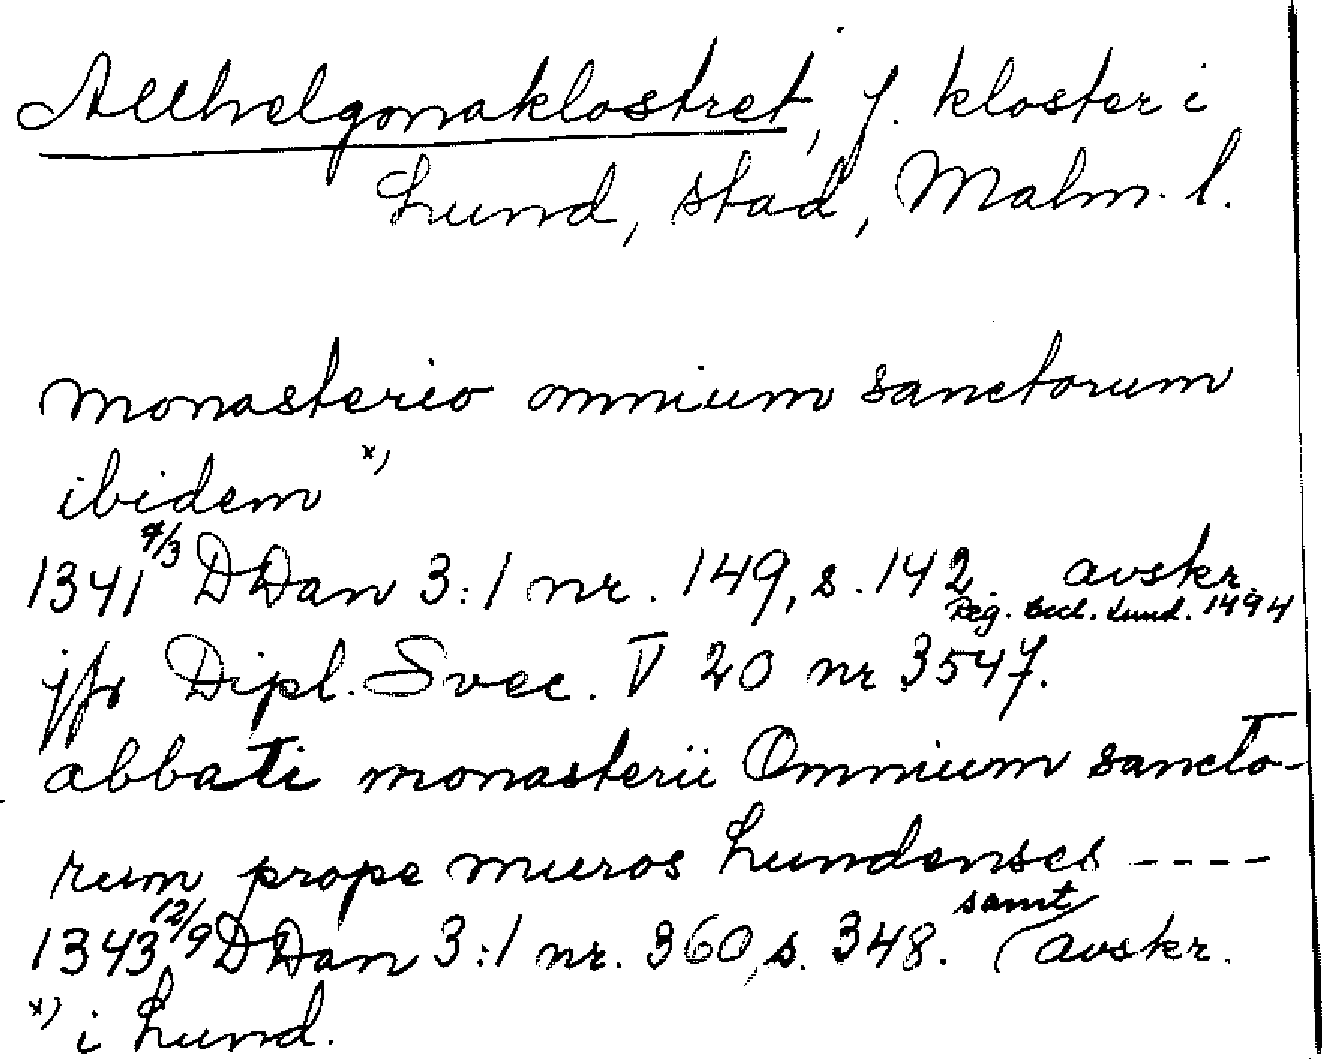 Allhelgonaklostret, f. kloster i
Lund, stad, Malm. l.
monasterio omnium sanctorum
ibidem x)
1341 9/3 DDan 3:1 nr. 149, s. 142. avskr.
Reg. Eccl. Lund. 1494
jfr Dipl. Svec. V 20 nr 3547.
abbati monasterii Omnium sancto-
rum prope muros Lundenses ----
1343 12/9 DDan 3:1 nr. 360, s. 348. (samt avskr.
x) i Lund.